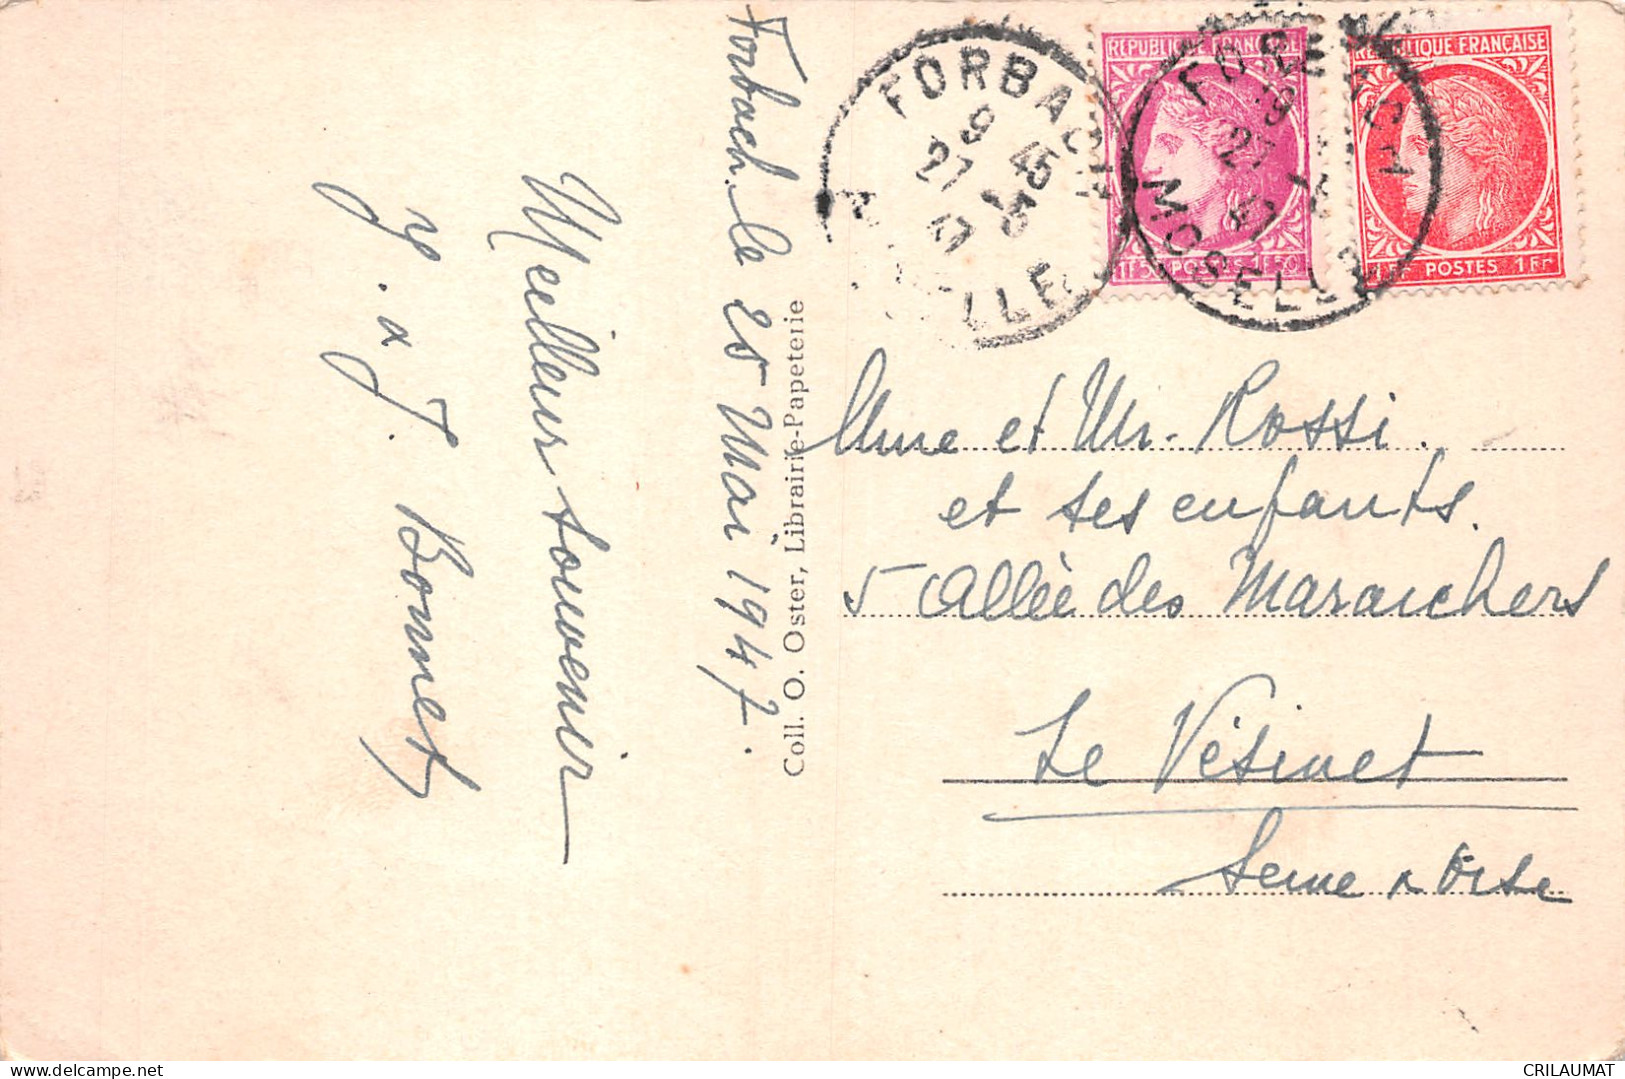 Forbach le 25 Mai 1947.
Meilleur souvenir
Y. & J. Bonnet
Coll. O. Oster, Librairie-Papeterie
FORBACH
9 45
27 -5
47
MOSELLE
RÉPUBLIQUE FRANÇAISE
1F50 POSTES 1F50
FORBACH
MOSELLE
RÉPUBLIQUE FRANÇAISE
1F POSTES 1FR
Mme et Mr. Rossi.
et ses enfants.
5 Allée des Maraichers
Le Vésinet
Seine & Oise
delcampe.net
CRILAUMAT